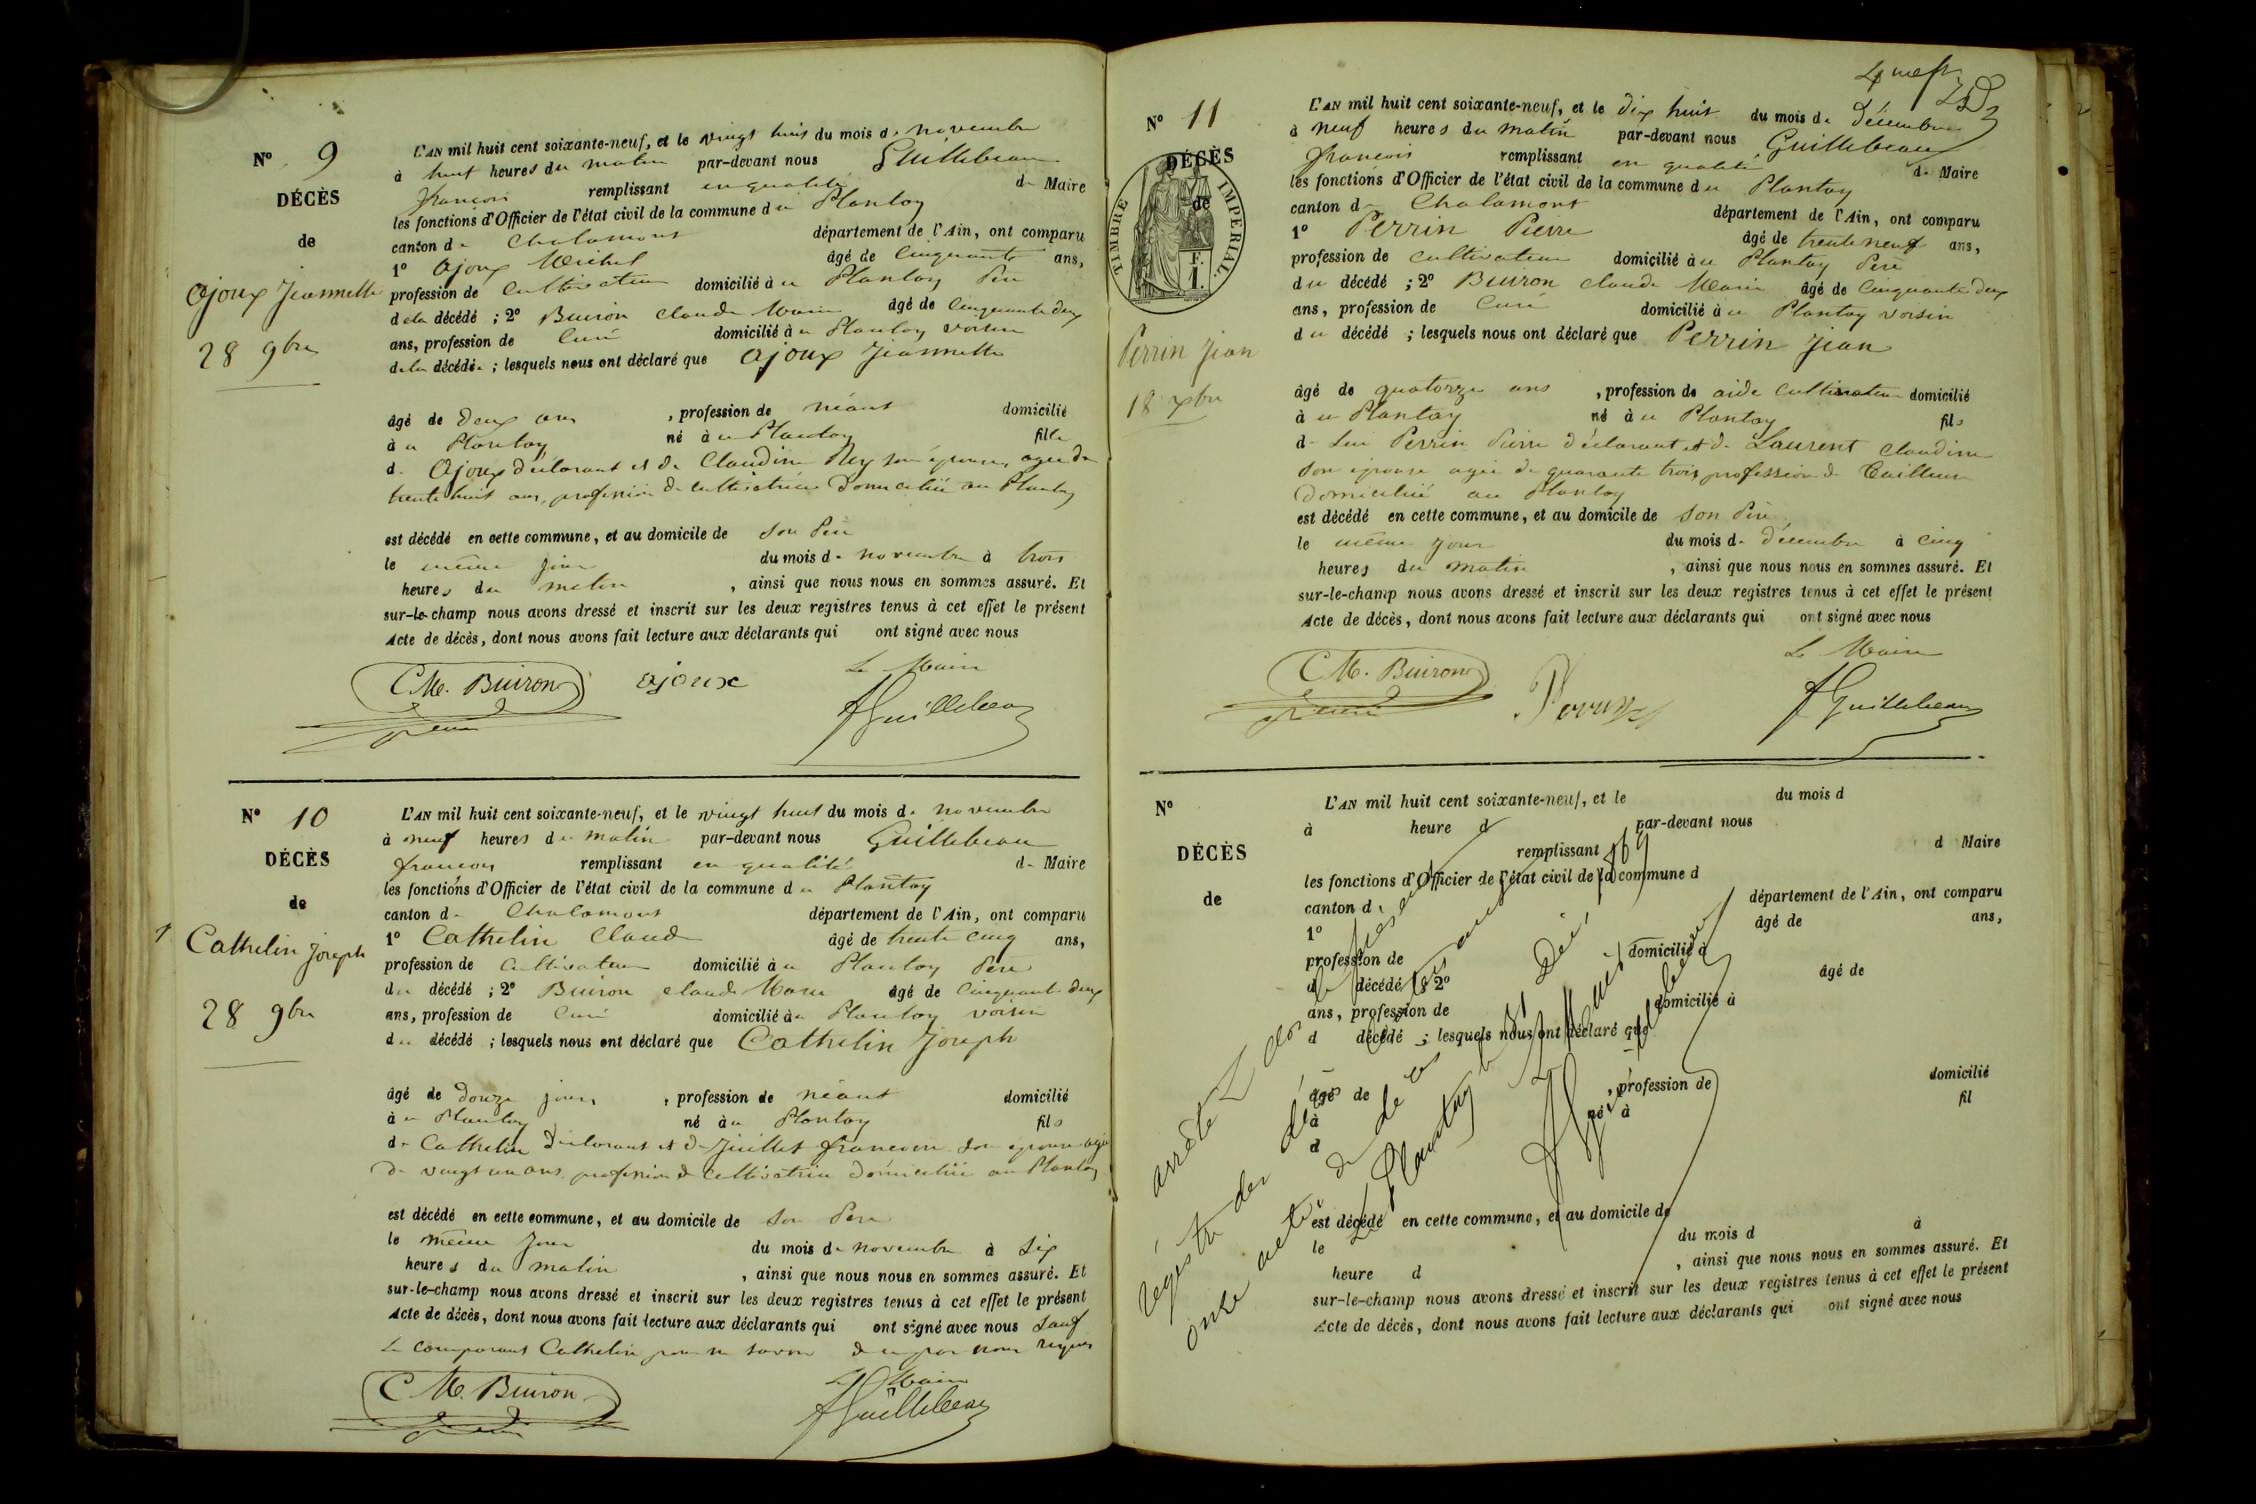 N° 9
DÉCÈS
de
Ajoux Jeannette
28 9bre
L'AN mil huit cent soixante-neuf, et le vingt huit du mois de novembre
à huit heures du matin par-devant nous Guillebeau
françois remplissant en qualité de Maire
les fonctions d'Officier de l'état civil de la commune du Plantay
canton de Chalamont département de l'Ain, ont comparu
1° Ajoux Michel âgé de Cinquante ans,
profession de Cultivateur domicilié à u Plantay Père
de la décédé ; 2° Buiron Claude Marie âgé de Cinquante deux
ans, profession de Curé domicilié à u Plantay voisin
de la décédée ; lesquels nous ont déclaré que Ajoux Jeannette
âgé de Deux ans , profession de néant domicilié
à u Plantay né à u Plantay fille
d. Ajoux déclarant et de Claudine Rey son épouse, agée de
trente huit ans, profession de cultivatrice Domiciliée au Plantay
est décédé en cette commune, et au domicile de son Père
le même jour du mois de novembre à trois
heures du matin , ainsi que nous nous en sommes assuré. Et
sur-le-champ nous avons dressé et inscrit sur les deux registres tenus à cet effet le présent
Acte de décès, dont nous avons fait lecture aux déclarants qui ont signé avec nous
Le Maire
C M. Buiron ajoux
f Guillebeau
N° 10
DÉCÈS
de
Cathelin Joseph
28 9bre
L'AN mil huit cent soixante-neuf, et le vingt huit du mois de novembre
à neuf heures du matin par-devant nous Guillebeau
françois remplissant en qualité de Maire
les fonctions d'Officier de l'état civil de la commune du Plantay
canton de Chalamont département de l'Ain, ont comparu
1° Cathelin Claude âgé de trente cinq ans,
profession de Cultivateur domicilié à u Plantay Père
du décédé ; 2° Buiron Claude Marie âgé de Cinquante deux
ans, profession de Curé domicilié à u Plantay voisin
du décédé ; lesquels nous ont déclaré que Cathelin Joseph
âgé de Douze jours , profession de néant domicilié
à u Plantay né à u Plantay fils
de Cathelin Déclarant et de Juillet françoise son épouse agée
de vingt un ans, profession de Cultivatrice Domiciliée au Plantay
est décédé en cette commune, et au domicile de son Père
le même jour du mois de novembre à Six
heures du matin , ainsi que nous nous en sommes assuré. Et
sur-le-champ nous avons dressé et inscrit sur les deux registres tenus à cet effet le présent
Acte de décès, dont nous avons fait lecture aux déclarants qui ont signé avec nous Sauf
Le comparant Cathelin pour ne savoir de ce par nous requis
Le Maire
C M. Buiron
f Guillebeau
TIMBRE IMPÉRIAL.
F. 1.
N° 11
DÉCÈS
de
Perrin Jean
18 xbre
L'AN mil huit cent soixante-neuf, et le dix huit du mois de Décembre
à neuf heures du matin par-devant nous Guillebeau
françois remplissant en qualité de Maire
les fonctions d'Officier de l'état civil de la commune du Plantay
canton de Chalamont département de l'Ain, ont comparu
1° Perrin Pierre âgé de trente neuf ans,
profession de cultivateur domicilié à u Plantay Père
du décédé ; 2° Buiron Claude Marie âgé de Cinquante deux
ans, profession de Curé domicilié à u Plantay voisin
du décédé ; lesquels nous ont déclaré que Perrin Jean
âgé de quatorze ans , profession de aide Cultivateur domicilié
à u Plantay né à u Plantay fils
de Perrin Pierre déclarant et de Laurent Claudine
son épouse agée de quarante trois, profession de Tailleuse
Domiciliée au Plantay
est décédé en cette commune, et au domicile de son Père
le même jour du mois de décembre à cinq
heures du matin , ainsi que nous nous en sommes assuré. Et
sur-le-champ nous avons dressé et inscrit sur les deux registres tenus à cet effet le présent
Acte de décès, dont nous avons fait lecture aux déclarants qui ont signé avec nous
Le Maire
C M. Buiron
f Guillebeau
N°
DÉCÈS
de
L'AN mil huit cent soixante-neuf, et le du mois d
à heure d par-devant nous
remplissant d Maire
les fonctions d'Officier de l'état civil de la commune d
canton d département de l'Ain, ont comparu
1° âgé de ans,
profession de domicilié à
d décédé ; 2° âgé de
ans, profession de domicilié à
d décédé ; lesquels nous ont déclaré que
âgé de , profession de domicilié
à né à fil
d
est décédé en cette commune, et au domicile de
le du mois d à
heure d , ainsi que nous nous en sommes assuré. Et
sur-le-champ nous avons dressé et inscrit sur les deux registres tenus à cet effet le présent
Acte de décès, dont nous avons fait lecture aux déclarants qui ont signé avec nous
arrêté clos le présent
registre des décès
onze actes de décès
Le Plantay le 31 Déc 1869
Le Maire
f Guillebeau